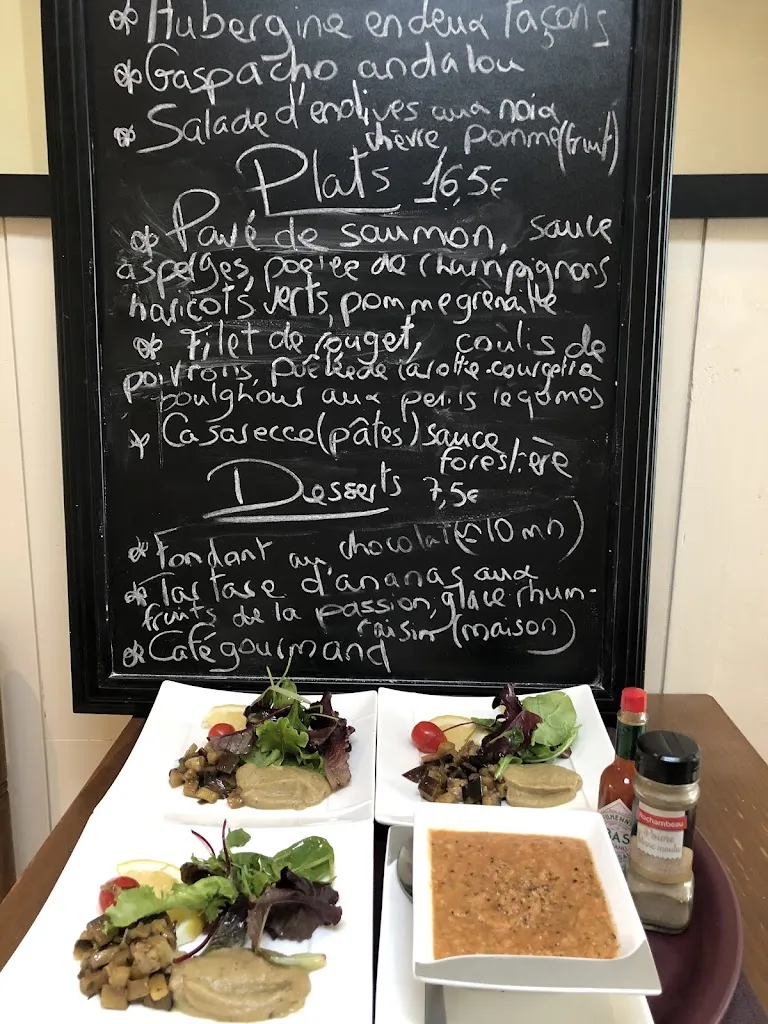 Aubergine en deux façons
Gaspacho andalou
Salade d'endives aux noix
chèvre pomme (fruit)
Plats 16,5€
Pavé de saumon, sauce
asperges, poêlée de champignons
haricots verts, pomme grenaille
Filet de rouget, coulis de
poivrons, poêlée de carotte-courgette
boulghour aux petits légumes
Casarecce (pâtes) sauce
forestière
Desserts 7,5€
Fondant au chocolat (≈10 mn)
Tartare d'ananas aux
fruits de la passion, glace rhum-
raisin (maison)
Café gourmand
Rochambeau
Poivre